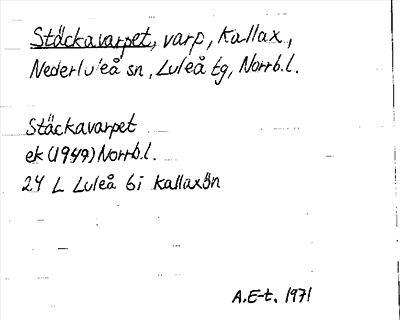 Stäckavarpet, varp, Kallax,
Nederluleå sn, Luleå tg, Norrb.l.
Stäckavarpet
ek (1949) Norrb.l.
24 L Luleå 6i Kallaxön
A.E-t. 1971